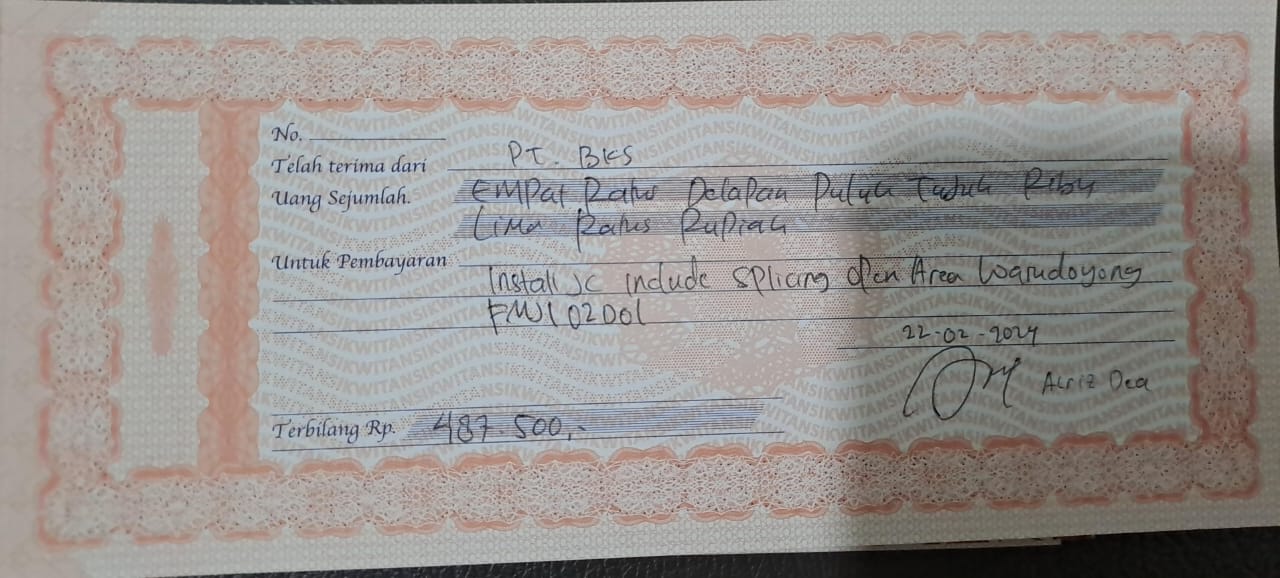 No.
Telah terima dari PT. BKS
Uang Sejumlah. Empat Ratus Delapan Puluh Tujuh Ribu
Lima Ratus Rupiah
Untuk Pembayaran
Install JC include Splicing Area Warudoyong
22-02-2024
Dea
Terbilang Rp. 487.500,-